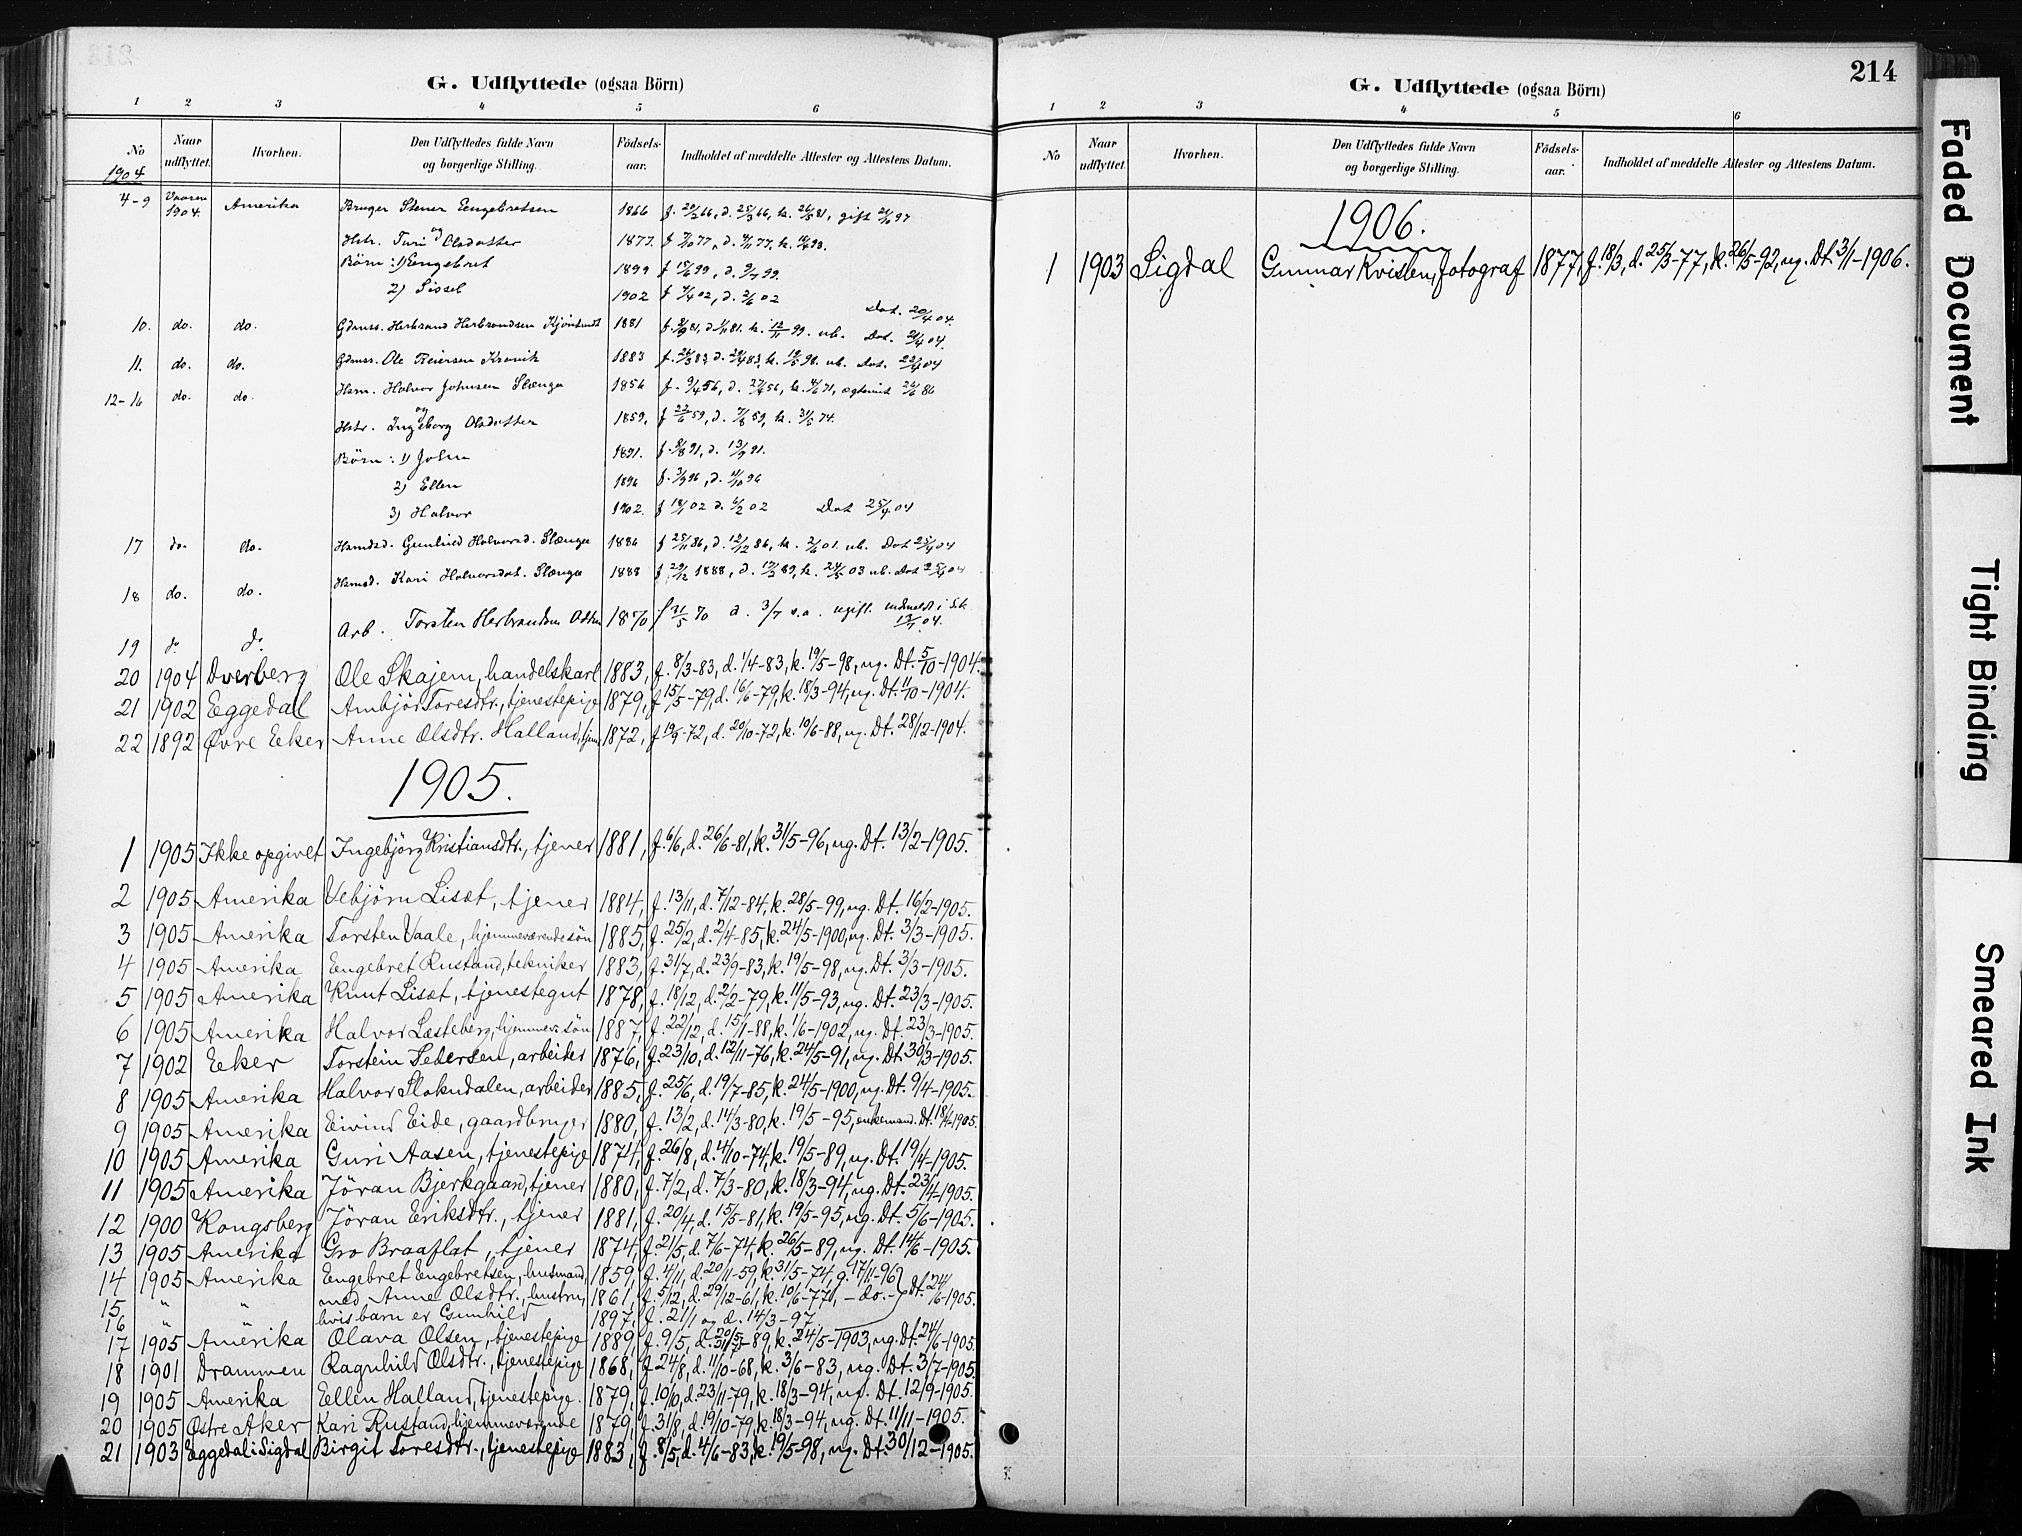 G. Udflyttede (ogsaa Börn)
1 2 3 4 5 6
No Naar udflyttet. Hvorhen. Den Udflyttedes fulde Navn og borgerlige Stilling. Födsels-aar. Indholdet af meddelte Attester og Attestens Datum.
1904
4-9 Vaaren 1904. Amerika Bruger Stener Engebretsen 1866
og
Hstr. Turi Olsdatter 1877.
Börn: 1) Engebret 1899
2) Sissel 1902 f 4/4 02, d. 2/6 02
Dat. 20/4 04.
10. do. do. Gdmss. Herbrand Herbrandsen 1881
11. do. do. Gdmss. Ole Reiersen Kravik 1883
12-16 do. do. Hsm. Halvor Johnsen Slænga 1856
og
Hstr. Ingeborg Olsdatter 1859,
Börn: 1) John 1891. f. 8/8 91, d. 13/9 91.
2) Ellen 1896 f. 3/9 96, d. 4/10 96
3) Halvor 1902. Dat 25/4 04
17 do. do. Hsmdsd. Gunhild Halvorsd. Slænga 1886 f 25/11 86, d. 12/12 86, k. 2/6 01. ub. Dat 25/4 04
18 do. do. Hsmsd. Kari Halvorsdat. Slænga 1888 f 29/12 1888, d. 17/3 89, k. 24/5 03 ub. Dat 25/4 04
19 do do Arb. Torsten Herbrandsen 1870 f 21/5 70 d. 3/7 s.a. ugift.
20 1904 Dverberg Ole Skajem, handelskarl 1883, f. 8/3-83, d. 1/4-83, k. 19/5-98, ug. Dt. 5/10-1904.
21 1902 Eggedal Ambjör Toresdtr., tjenestepige 1879, f 15/5-79, d. 16/6-79, k. 18/3-94, ug. Dt. 11/10-1904.
22 1892 Øvre Eker Anne Olsdtr. Halland, tjen. 1872, f 19/9-72, d. 20/10-72, k. 10/6-88, ug. Dt. 28/12-1904.
1905.
1 1905 Ikke opgivet Ingebjörg Kristiansdtr., tjener 1881, f. 6/6, d. 26/6-81, k. 31/5-96, ug. Dt. 13/2-1905.
2 1905 Amerika Vebjörn Liset, tjener 1884, f. 13/11, d. 7/12-84, k. 28/5-99, ug. Dt. 16/2-1905.
3 1905 Amerika Torsten Vaale, hjemmeværende sön 1885, f. 25/2, d. 2/4-85, k. 24/5-1900, ug. Dt. 3/3-1905.
4 1905 Amerika Engebret Rustand, tekniker 1883, f. 31/7, d. 23/9-83, k. 19/5-98, ug. Dt. 3/3-1905.
5 1905 Amerika Knut Liset, tjenestegut 1878, f. 18/12, d. 2/2-79, k. 11/5-93, ug. Dt. 23/3-1905.
6 1905 Amerika Halvor Læsteberg, hjemmev. sön 1887, f. 22/12, d. 15/1-88, k. 1/6-1902, ug. Dt. 23/3-1905.
7 1902 Eker Torstein Pedersen, arbeider 1876, f. 23/10, d. 12/11-76, k. 24/5-91, ug. Dt. 30/3-1905.
8 1905 Amerika Halvor Slokndalen, arbeider 1885, f. 25/6, d. 19/7-85, k. 24/5-1900, ug. Dt. 9/4-1905.
9 1905 Amerika Eivind Eide, gaardbruger 1880, f. 13/2, d. 14/3-80, k. 19/5-95, enkemand. Dt. 18/4-1905.
10 1905 Amerika Guri Aasen, tjenestepige 1874, f. 26/8, d. 4/10-74, k. 19/5-89, ug. Dt. 19/4-1905.
11 1905 Amerika Jöran Bjerkgaard, tjener 1880, f. 7/2, d. 7/3-80, k. 18/3-94, ug. Dt. 23/4-1905.
12 1900 Kongsberg Jöran Eriksdtr., tjener 1881, f. 20/4, d. 15/5-81, k. 19/5-95, ug. Dt. 5/6-1905.
13 1905 Amerika Gro Braaflat, tjener 1874, f. 21/5, d. 7/6-74, k. 26/5-89, ug. Dt. 14/6-1905.
14 1905 Amerika Engebret Engebretsen, husmand, 1859, f. 4/11, d. 20/11-59, k. 31/5-74, g. 17/11-96
15 " " med Anne Olsdtr., hustru, 1861, f. 5/12, d. 29/12-61, k. 10/6-77, - do. - Dt. 24/6-1905.
16 " " hvis barn er Gunhild 1897, f. 21/1 og d. 14/3-97.
17 1905 Amerika Olava Olsen, tjenestepige 1889, f. 9/5, d. -89, k. 24/5-1903, ug. Dt. 24/6-1905.
18 1901 Drammen Ragnhild Olsdtr., tjenestepige 1868, f 24/8, d. 11/10-68, k. 3/6-83, ug. Dt. 3/7-1905.
19 1905 Amerika Ellen Halland, tjenestepige. 1879, f. 10/10, d. 23/11-79, k. 18/3-94, ug. Dt. 12/9-1905.
20 1905 Østre Aker Kari Rustand, hjemmeværende 1879, f. 31/8, d. 19/10-79, k. 18/3-94, ug. Dt. 11/11-1905.
21 1903 Eggedal i Sigdal Birgit Toresdtr., tjenestepige 1883, f. 8/5, d. 4/6-83, k. 19/5-98, ug. Dt. 30/12-1905.
214
G. Udflyttede (ogsaa Börn)
1 2 3 4 5 6
No Naar udflyttet. Hvorhen. Den Udflyttedes fulde Navn og borgerlige Stilling. Födsels-aar. Indholdet af meddelte Attester og Attestens Datum.
1906.
1 1903 Sigdal Gunnar Kvislen, fotograf 1877, f. 18/3, d. 25/3-77, k. 26/5-92, ug. Dt. 3/1-1906.
Faded Document
Tight Binding
Smeared Ink